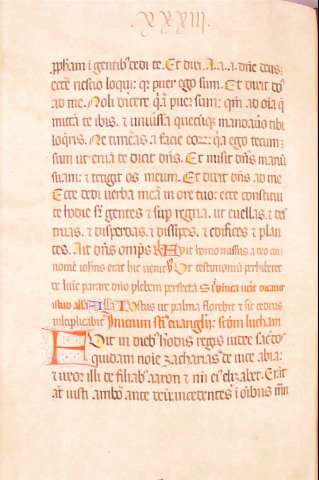 xxxiii
ppham i gentib dedi te. Et dixi A. a. a. dne deus:
ecce nescio loqui: qr puer ego sum. Et dixit dns
ad me. Noli dicere qa puer sum: qm ad oia q
mitta te ibis: et universa quecuqz mandavero tibi
loqris. Ne timeas a facie eorz: qa ego tecum
sum ut eruā te dicit dns. Et misit dns manū
suam: et tetigit os meum. Et dixit dns ad me
Ecce dedi verba mea in ore tuo: ecce constitui
te hodie sr gentes et sup regna. ut evellas. et des
truas. et disperdas. et dissipes. et edifices et plan
tes. Ait dns omps Fuit homo missus a deo cui
nomē iohes erat hic venit Ut testimoniū perhiberet
de lumine parare dno plebem perfectā
alla Iustus ut palma florebit et sic cedrus
multiplicabit Inicium sti evangelii scdm lucham
Fuit in dieb herodis regis iudee sacdos
quidam noie zacharias de vice abia:
et uxor illi de filiab aaron et nm eius elizabet. Erāt
at iusti ambo ante deū incedentes i oibus man